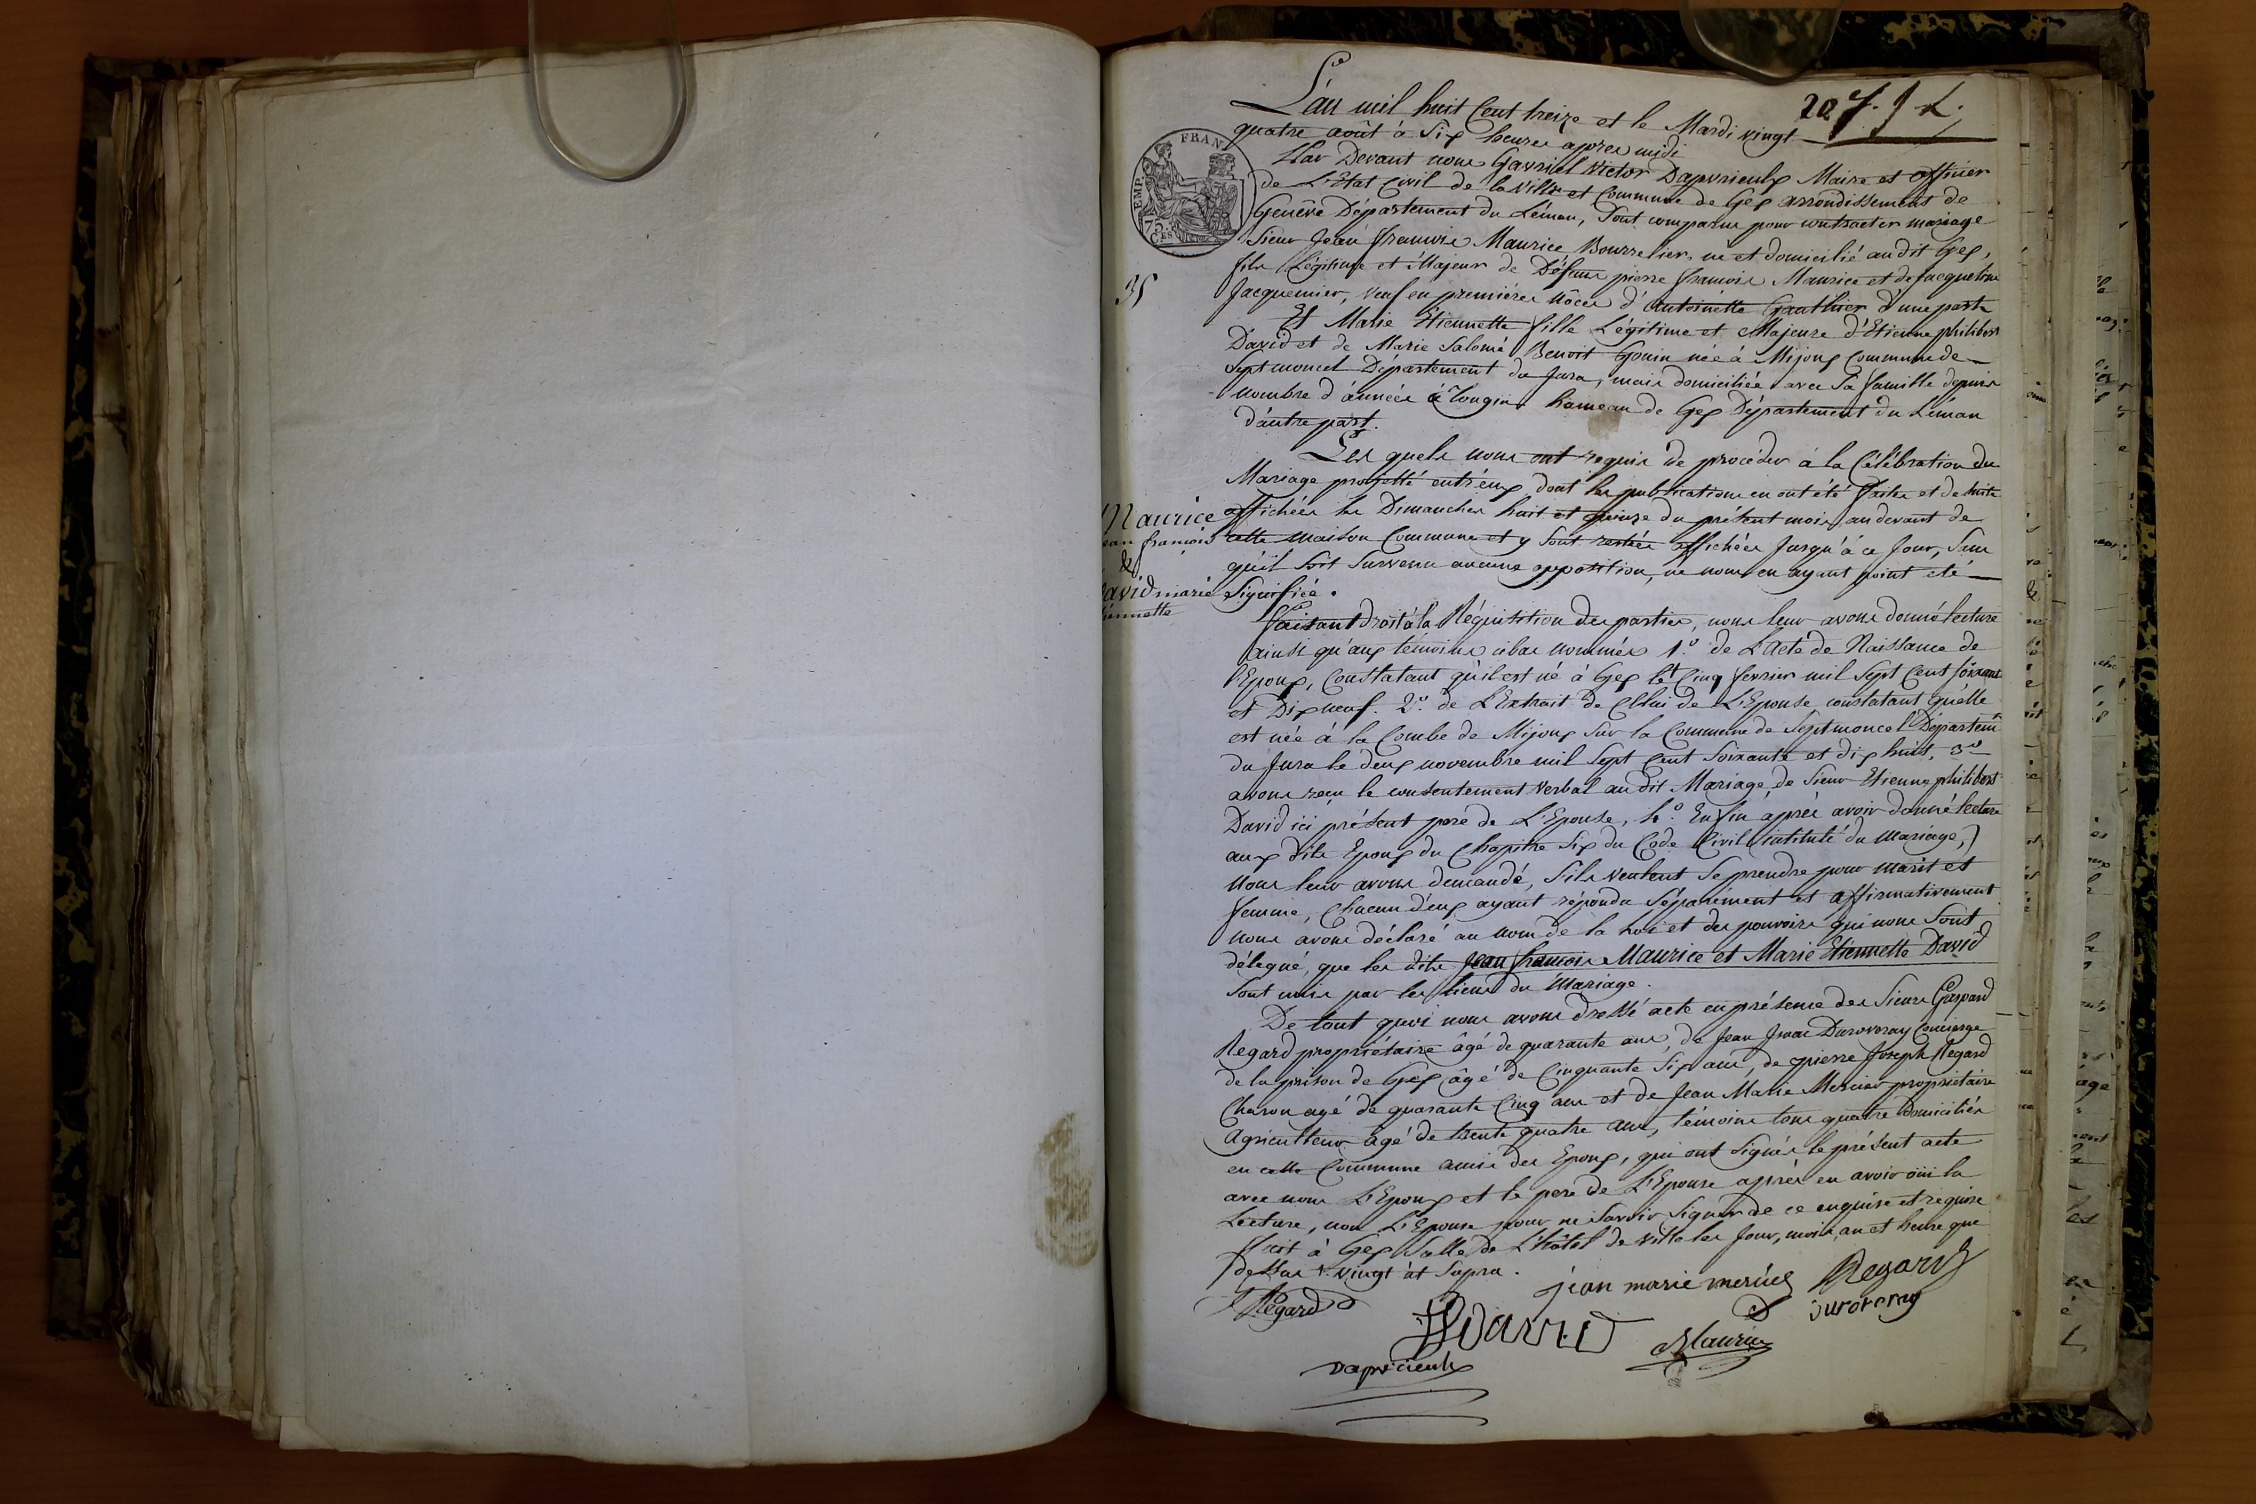 207.
L'an mil huit Cent treize et le Mardi vingt
quatre août à Six heures apres midi
Par Devant nous Gavriel Victor Dapvrieulx Maire et officier
de L'Etat Civil de la Ville et Commune de Gex arrondissement de
Genêve Département du Léman, Sont comparus pour contracter mariage
Sieur Jean françois Maurice Bourrelier, né et domicilié audit Gex,
fils Légitime et Majeur de Défunt pierre françois Maurice et de Jacqueline
Jacquemier, veuf en premières Nôces d'Antoinette Gauthier d'une part
Et Marie Etiennette fille Légitime et Majeure d'Etienne philibert
David et de Marie Salomé Benoit Gonin née à Mijoux Commune de
Septmoncel Département du Jura, mais domiciliée avec Sa famille depuis
Nombre d'années à Tougin hameau de Gex Département du Léman
d'autre part.
Les quels nous ont requis de procéder à la Célébration du
Mariage projetté entr'eux dont les publications en ont été faites et de suite
affichées les Dimanches huit et quinze du présent mois, au devant de
cette maison Commune et y Sont restées affichées Jusqu'à ce Jour, Sans
qu'il Soit Survenu aucune opposition, ne nous en ayant point eté
Signifiée.
Faisant droit à la Réquisition des parties, nous leur avons donné lecture
ainsi qu'aux témoins cibas nommés 1.° de L'Acte de Naissance de
l'Epoux, Constatant qu'il est né à Gex le Cinq fevrier mil Sept Cent Soixante
et Dixneuf. 2.° de L'Extrait de Celui de L'Epouse constatant qu'elle
est née à la Combe de Mijoux Sur la Commune de Septmoncel Départemt
du Jura le deux novembre mil Sept Cent Soixante et dix huit, 3°
avons reçu le consentement Verbal au dit Mariage, de Sieur Etienne philibert
David ici présent pere de L'Epouse, 4.° Enfin après avoir donné lecture
aux dits Epoux du Chapitre Six du Code Civil (intitulé du Mariage,)
Nous leur avons demandé, S'ils veulent Se prendre pour marit et
femme, Chacun d'eux ayant répondu Séparément et affirmativement
Nous avons déclaré au nom de la Loi et des pouvoirs qui nous Sont
délegué, que les dits Jean françois Maurice et Marie Etiennette David
Sont unis par les liens du Mariage.
De tout quoi nous avons dressé acte en présence des Sieurs Gaspard
Regard propriétaire âgé de quarante ans, de Jean Isaac Duroveray Concierge
de la prison de Gex âgé de Cinquante Six ans, de pierre Joseph Regard
Charon agé de quarante Cinq ans et de Jean Marie Mercier propriétaire
Agriculteur âgé de trente quatre ans, témoins tous quatre Domiciliés
en cette Commune amis des Epoux, qui ont Signés le présent acte
avec nous L'Epoux et le pere de L'Epouse après en avoir ouï la
Lecture, non L'Epouse pour ne Savoir Signer de ce enquise et requise
fait à Gex Salle de L'hôtel de Ville les Jour, mois, an et heure que
dessus
jean marie mercier Regard
Regard
David
Duroveray
Maurice
Dapvrieulx
EMP. FRAN.
75.
CES
35
Maurice
ean françois
&
avid marie
iennette